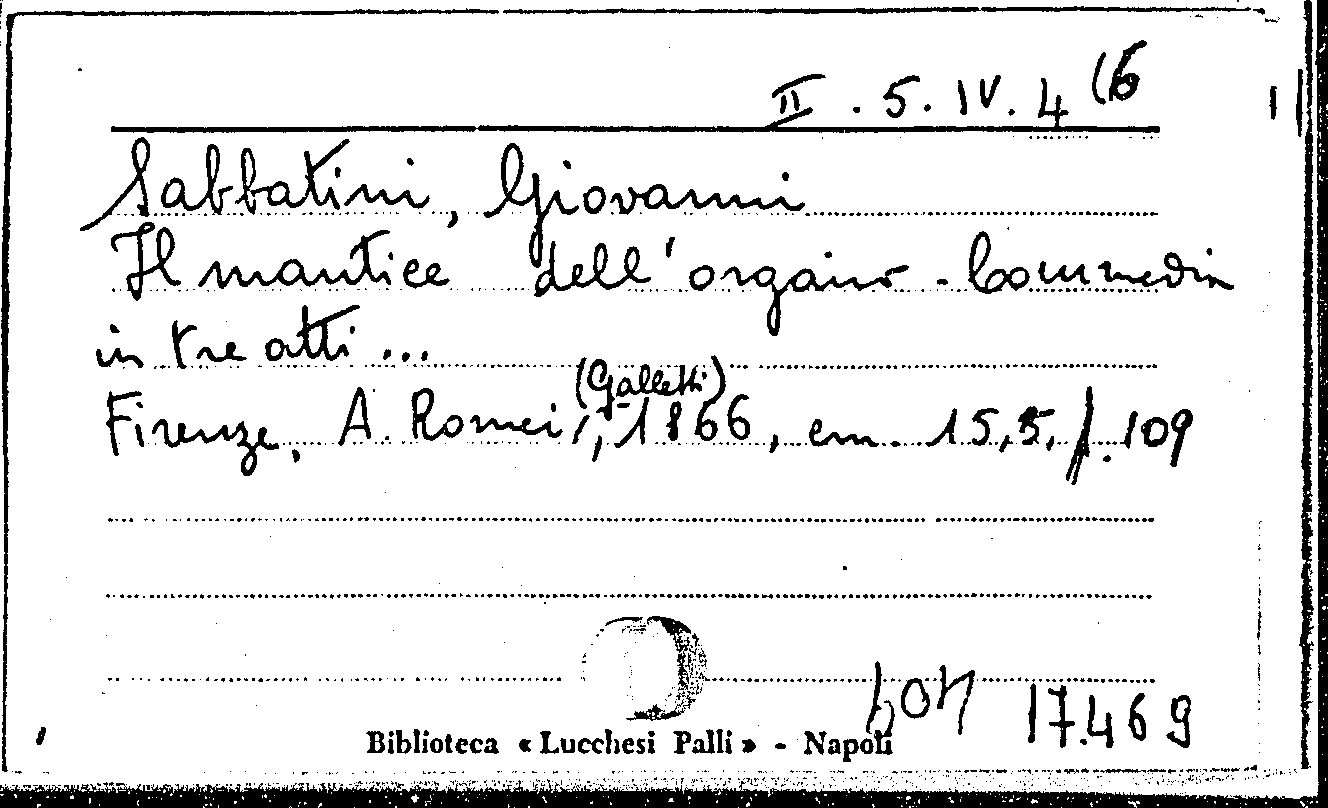 II . 5. IV. 4 (6
Sabbatini, Giovanni
Il mantice dell'organo - Commedia
in tre atti ...
(Galletti)
Firenze, A. Romei, 1866, cm. 15,5, p. 109
17.469
Biblioteca « Lucchesi Palli » - Napoli